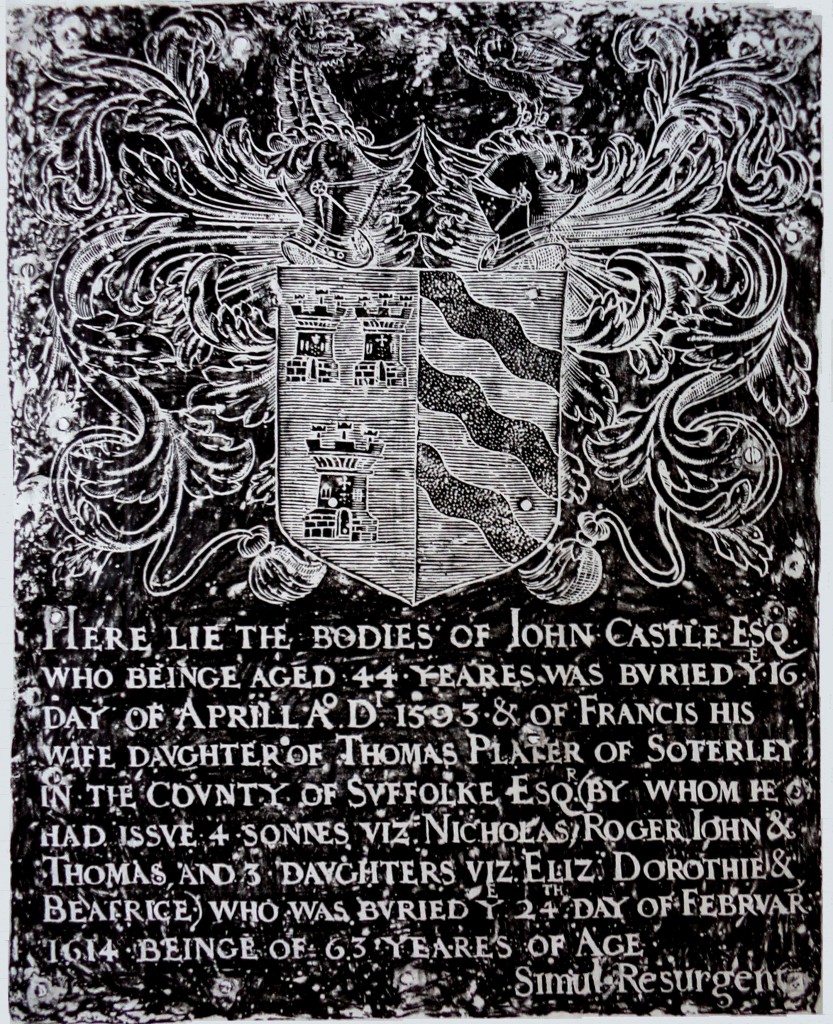 HERE LIE THE BODIES OF IOHN CASTLE ESQR
WHO BEINGE AGED 44 YEARES WAS BVRIED YE 16
DAY OF APRILL AO DI 1593 & OF FRANCIS HIS
WIFE DAVGHTER OF THOMAS PLATER OF SOTERLEY
IN THE COVNTY OF SVFFOLKE ESQR (BY WHOM HE
HAD ISSVE 4 SONNES VIZ. NICHOLAS, ROGER, IOHN &
THOMAS, AND 3 DAVGHTERS VIZ ELIZ: DOROTHIE &
BEATRICE) WHO WAS BVRIED YE 24TH DAY OF FEBRVAR
1614 BEINGE OF 63 YEARES OF AGE
Simul Resurgent